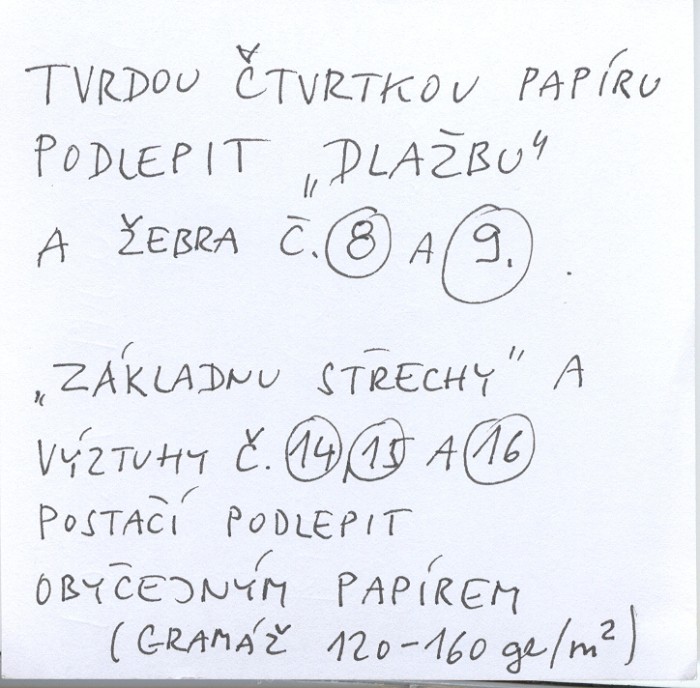 TVRDOU ČTVRTKOU PAPÍRU
PODLEPIT „DLAŽBU“
A ŽEBRA Č. 8 A 9.
„ZÁKLADNU STŘECHY“ A
VÝZTUHY Č. 14, 15 A 16
POSTAČÍ PODLEPIT
OBYČEJNÝM PAPÍREM
(GRAMÁŽ 120-160 gr/m²)